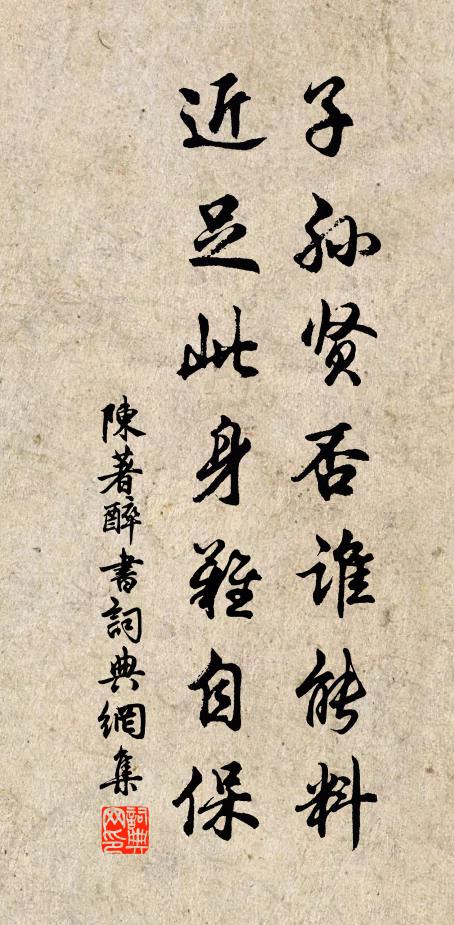 子孙贤否谁能料
近足此身難自保
陳著醉書詞典網集
詞典网印